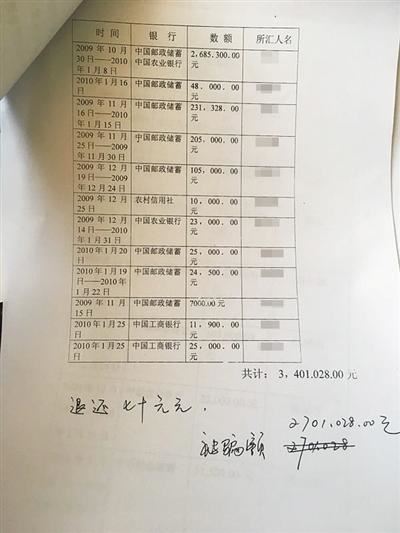 时 间 银 行 数 额 所汇人名
2009 年 10 月 中国邮政储蓄 2,685,300.00
30 日——2010 中国农业银行 元
年 1 月 8 日
2010 年 1 月 16 中国邮政储蓄 48,000.00
日 元
2009 年 11 月 中国邮政储蓄 231,328.00
16 日——2010 元
年 1 月 15 日
2009 年 11 月 中国邮政储蓄 205,000.00
25 日——2009 元
年 11 月 30 日
2009 年 12 月 中国邮政储蓄 105,000.00
19 日——2009 元
年 12 月 24 日
2009 年 12 月 农村信用社 10,000.00
25 日 元
2009 年 12 月 中国农业银行 23,000.00
14 日——2010 元
年 1 月 31 日
2010 年 1 月 20 中国邮政储蓄 25,000.00
日 元
2010 年 1 月 19 中国邮政储蓄 24,500.00
日——2010 年 元
1 月 22 日
2009 年 11 月 中国邮政储蓄 7000.00 元
15 日
2010 年 1 月 25 中国工商银行 11,900.00
日 元
2010 年 1 月 25 中国工商银行 25,000.00
日 元
共计: 3,401.028.00 元
退还 七十元元.
2701,028.00元
被骗额 2701028